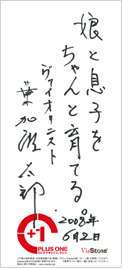 娘と息子を
ちゃんと育てる
ヴァイオリニスト
葉加瀬太郎
2008年
6月2日
+1
PLUS ONE
ViaStone